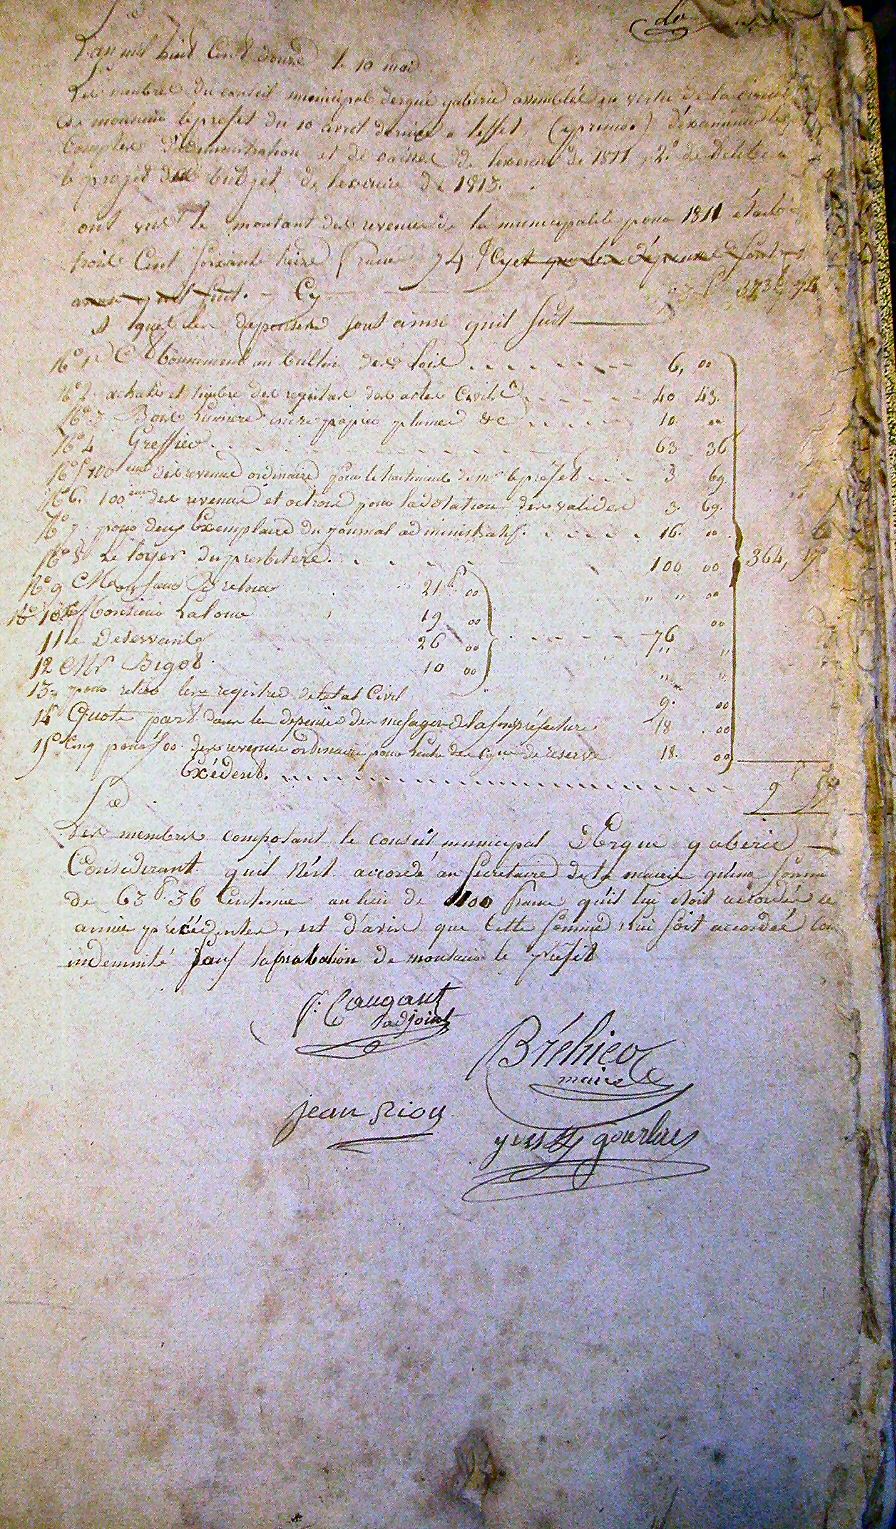 L'an mil huit Cent douze le 10 mai
Les membres du conseil municipal dergué gaberic assemblés en vertu de la
de monsieur le prefet du 10 avril dernier a leffet (1 d'examiner les
Comptes d'administration et de caisse de lexercice de 1811, 2° de Deliberer
le projet de budjet de lexercice de 1813.
ont vu le montant des revenus de la municipalité pour 1811
trois Cent soixante treize francs 74
373 74
et que les depenses sont ainsi quil suit
N° 1er Abonnement au bulletin des lois 6, 00
N° 2 achats et timbre des registres des actes Civils 40 43
N° 3 Bois Lumiere encre papier plumes &c 10 00
N° 4 Greffier 63 36
N° 5 100eme des revenus ordinaires pour le traitement de mr le prefet 3 69
N° 6 100eme des revenus et octrois pour la dotation des invalides 3 69
N° 7 pour deux Exemplaires du journal administratif 16 00
N° 8 Le loyer du presbitere 100 00 364,
N° 9 Monsieur 21 00 " " 00
N° 10 Monsieur Lalour 19 00 00
11 le Deservant 26 00 76 "
12 Mr Bigot 10 00 " "
13 pour relier les registres de letat Civil 9 00
14 Quote part dans les depenses des messagers de la sous préfecture 18 00
15 Cinq pour 100 des revenus ordinaires pour de reserve 18 00
Exédent 9
Les membres composant le conseil municipal d'Ergue gaberic
Considerant quil n'est accordé au secretaire de la mairie qu'une somme
de 63 f 36 Centimes au lieu de 100 francs qu'il lui etoit accordés
année précédentes, est d'avis que cette somme lui soit accordée
indemnité sauf laprobation de monsieur le prefet
Caugant
adjoint
Bréhier
maire
jean Riou
yves gourlay